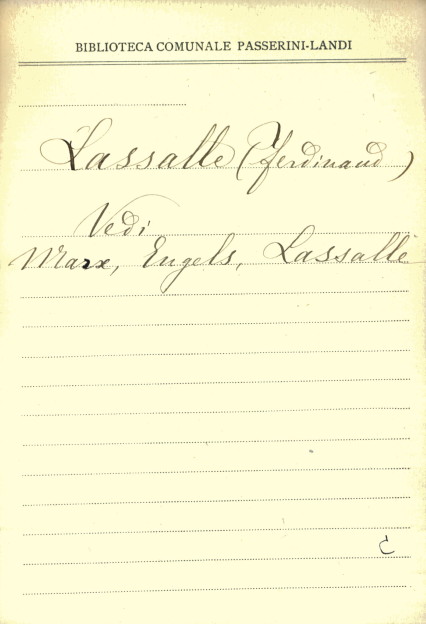 BIBLIOTECA COMUNALE PASSERINI-LANDI
Lassalle (Ferdinand)
Vedi
Marx, Engels, Lassalle